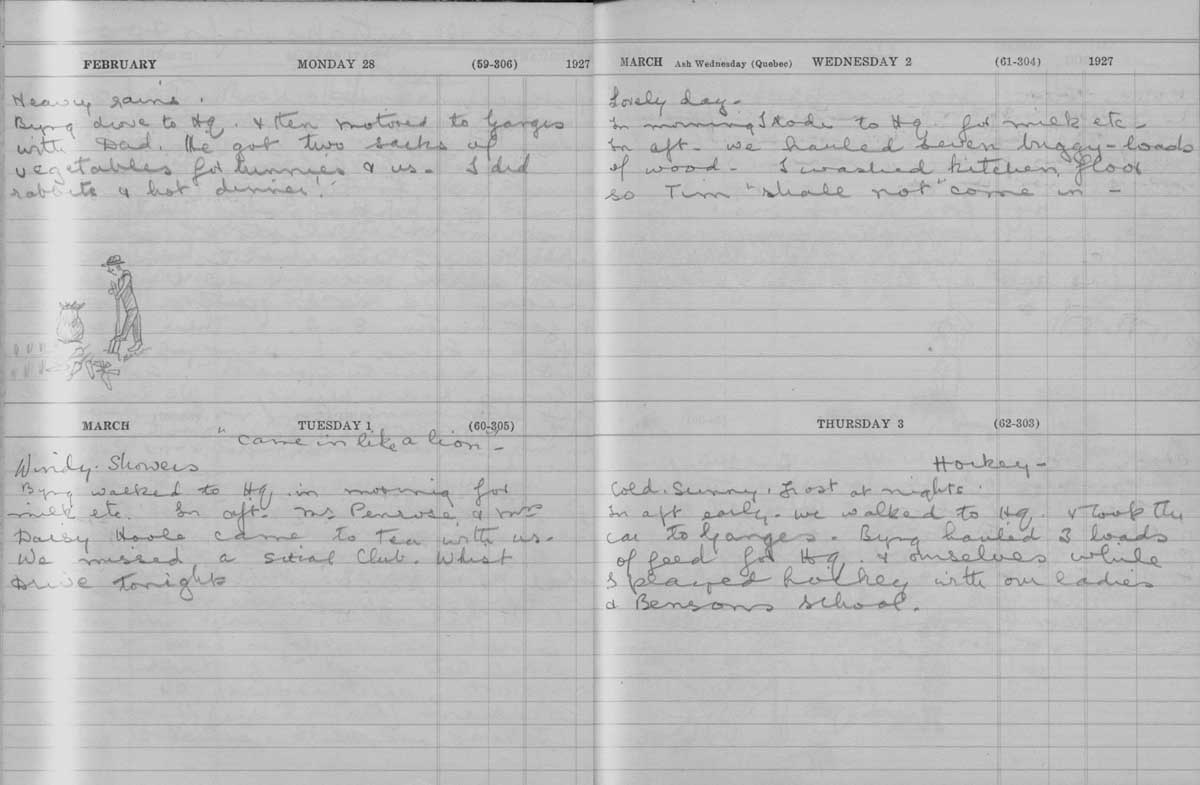 FEBRUARY MONDAY 28 (59-306) 1927
Heavy rains.
Byng drove to Hq. & then motored to Ganges
with Dad. He got two sacks of
vegetables for bunnies & us. I did
rabbits & hot dinner!
MARCH TUESDAY 1 (60-305)
"Came in like a lion" -
Windy. Showers
Byng walked to Hq. in morning for
milk etc. In aft. Mrs Penrose & Mrs
Daisy Hoole came to tea with us.
We missed a Social Club. Whist
Drive tonight
MARCH Ash Wednesday (Quebec) WEDNESDAY 2 (61-304) 1927
Lovely day.
In morning I rode to Hq. for milk etc -
In aft. we hauled seven buggy-loads
of wood. I washed kitchen floor
so Tim "shall not" come in -
THURSDAY 3 (62-303)
Hockey -
Cold. Sunny. Frost at nights.
In aft early. we walked to Hq. & took the
car to Ganges. Byng hauled 3 loads
of feed for Hq. & ourselves while
I played hockey with our ladies
& Bensons School.